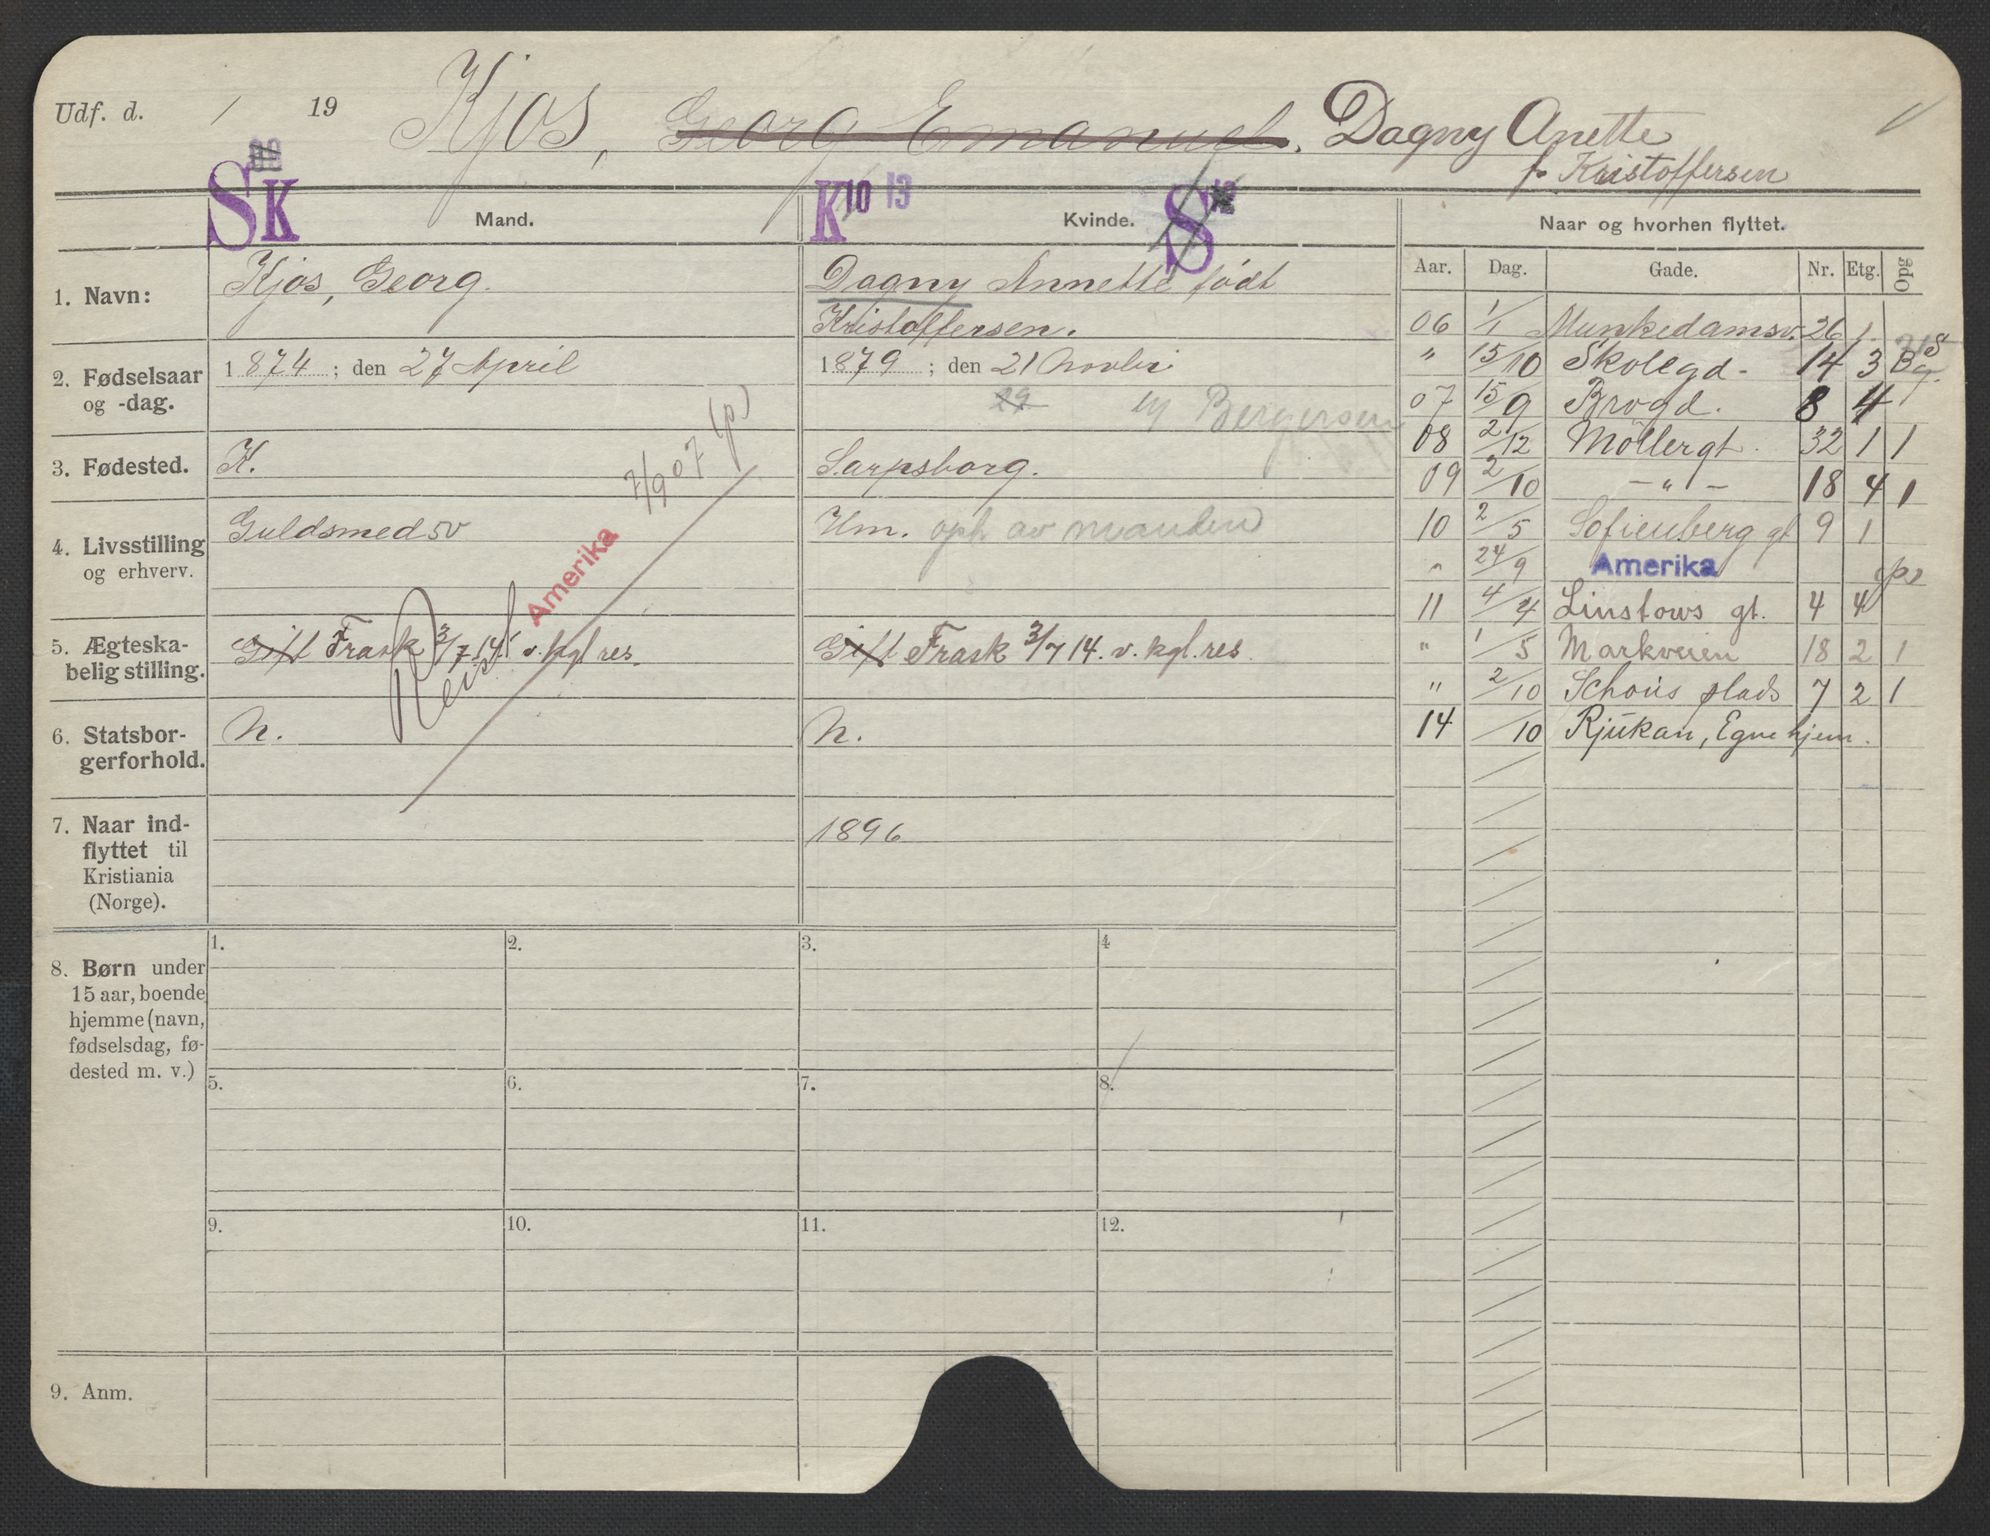 Udf. d. / 19 Kjos, Georg Emanuel. Dagny Anette
f. Kristoffersen
SK Mand. K 10 13 Kvinde. S Naar og hvorhen flyttet.
Aar. Dag. Gade. Nr. Etg. Opg
1. Navn: Kjos, Georg. Dagny Annette født
Kristoffersen.
2. Fødselsaar og -dag. 1874; den 27 April 1879; den 21 Novbr
29 Bergersen
3. Fødested. K. Sarpsborg.
7/9 07 (p)
4. Livsstilling og erhverv. Guldsmedsv Hm. oph av manden
Amerika
Reist
5. Ægteskabelig stilling. Gift Frask 3/7 14 v. kgl. res. Gift Frask 3/7 14. v. kgl. res.
6. Statsborgerforhold. N. N.
7. Naar indflyttet til Kristiania (Norge). 1896
8. Børn under 15 aar, boende hjemme (navn, fødselsdag, fødested m. v.)
1. 2. 3. 4
5. 6. 7. 8.
9. 10. 11. 12.
9. Anm.
06 1/1 Munkedamsv. 26 1
" 15/10 Skolegd. 14 3 Bg.
07 15/9 Brogd. 8 4 1
08 2/12 Möllergt. 32 1 1
09 2/10 — " — 18 4 1
10 2/5 Sofienberg gt 9 1
" 24/9 Amerika (p)
11 4/4 Linstows gt. 4 4
" 1/5 Markveien 18 2 1
" 2/10 Schous plads 7 2 1
14 /10 Rjukan, Egne hjem.